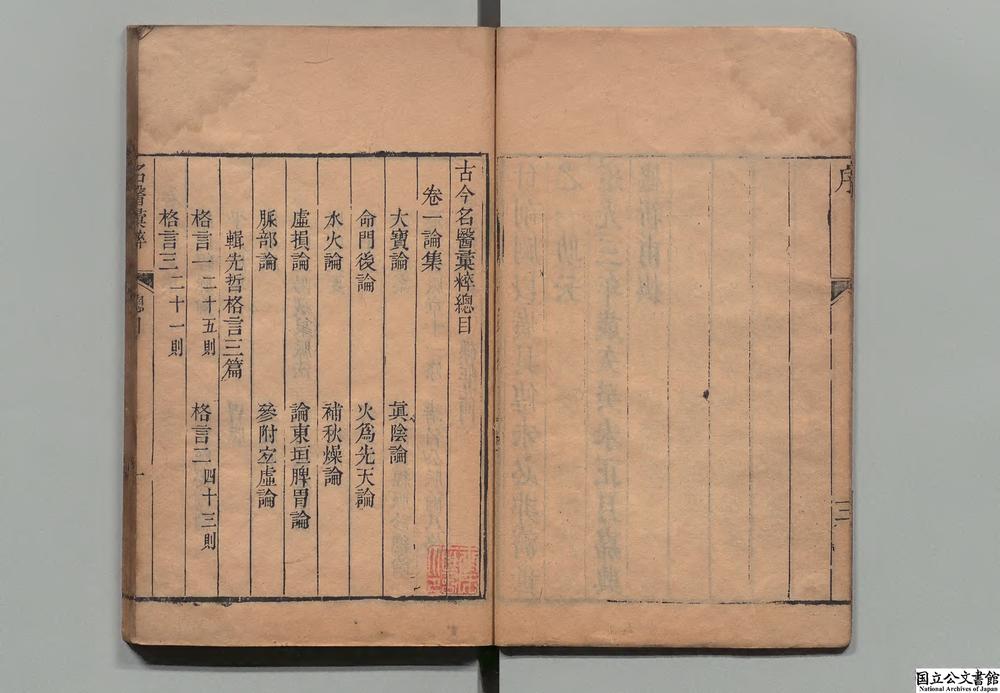 序
三
古今名醫彙粹總目
卷一論集
大寶論　眞陰論
命門後論　火爲先天論
水火論　補秋燥論
虛損論　論東垣脾胃論
脈部論　參附宜虛論
輯先哲格言三篇
格言一 二十五則　格言二 四十三則
格言三 二十一則
名醫彙粹
總目
一
国立公文書館
National Archives of Japan